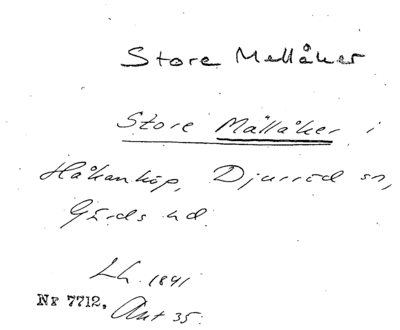 Store Mellåker
Store Mällåker i
Håkanköp, Djurröd sn,
Gärds hd.
Lh. 1841
Nr 7712. Akt 35.